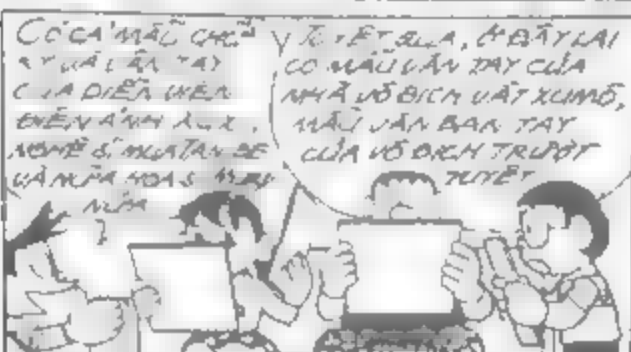 CÓ CẢ MẪU CHỮ
KÝ VÀ VÂN TAY
CỦA DIỄN VIÊN
ĐIỆN ẢNH
NGHỆ SĨ MÚA
VÀ NỮA
NỮA
TUYỆT QUÁ, Ở ĐÂY LẠI
CÓ MẪU VÂN TAY CỦA
NHÀ VÔ ĐỊCH VẬT XUMÔ,
MẪU VÂN BÀN TAY
CỦA VÔ ĐỊCH TRƯỢT
TUYẾT